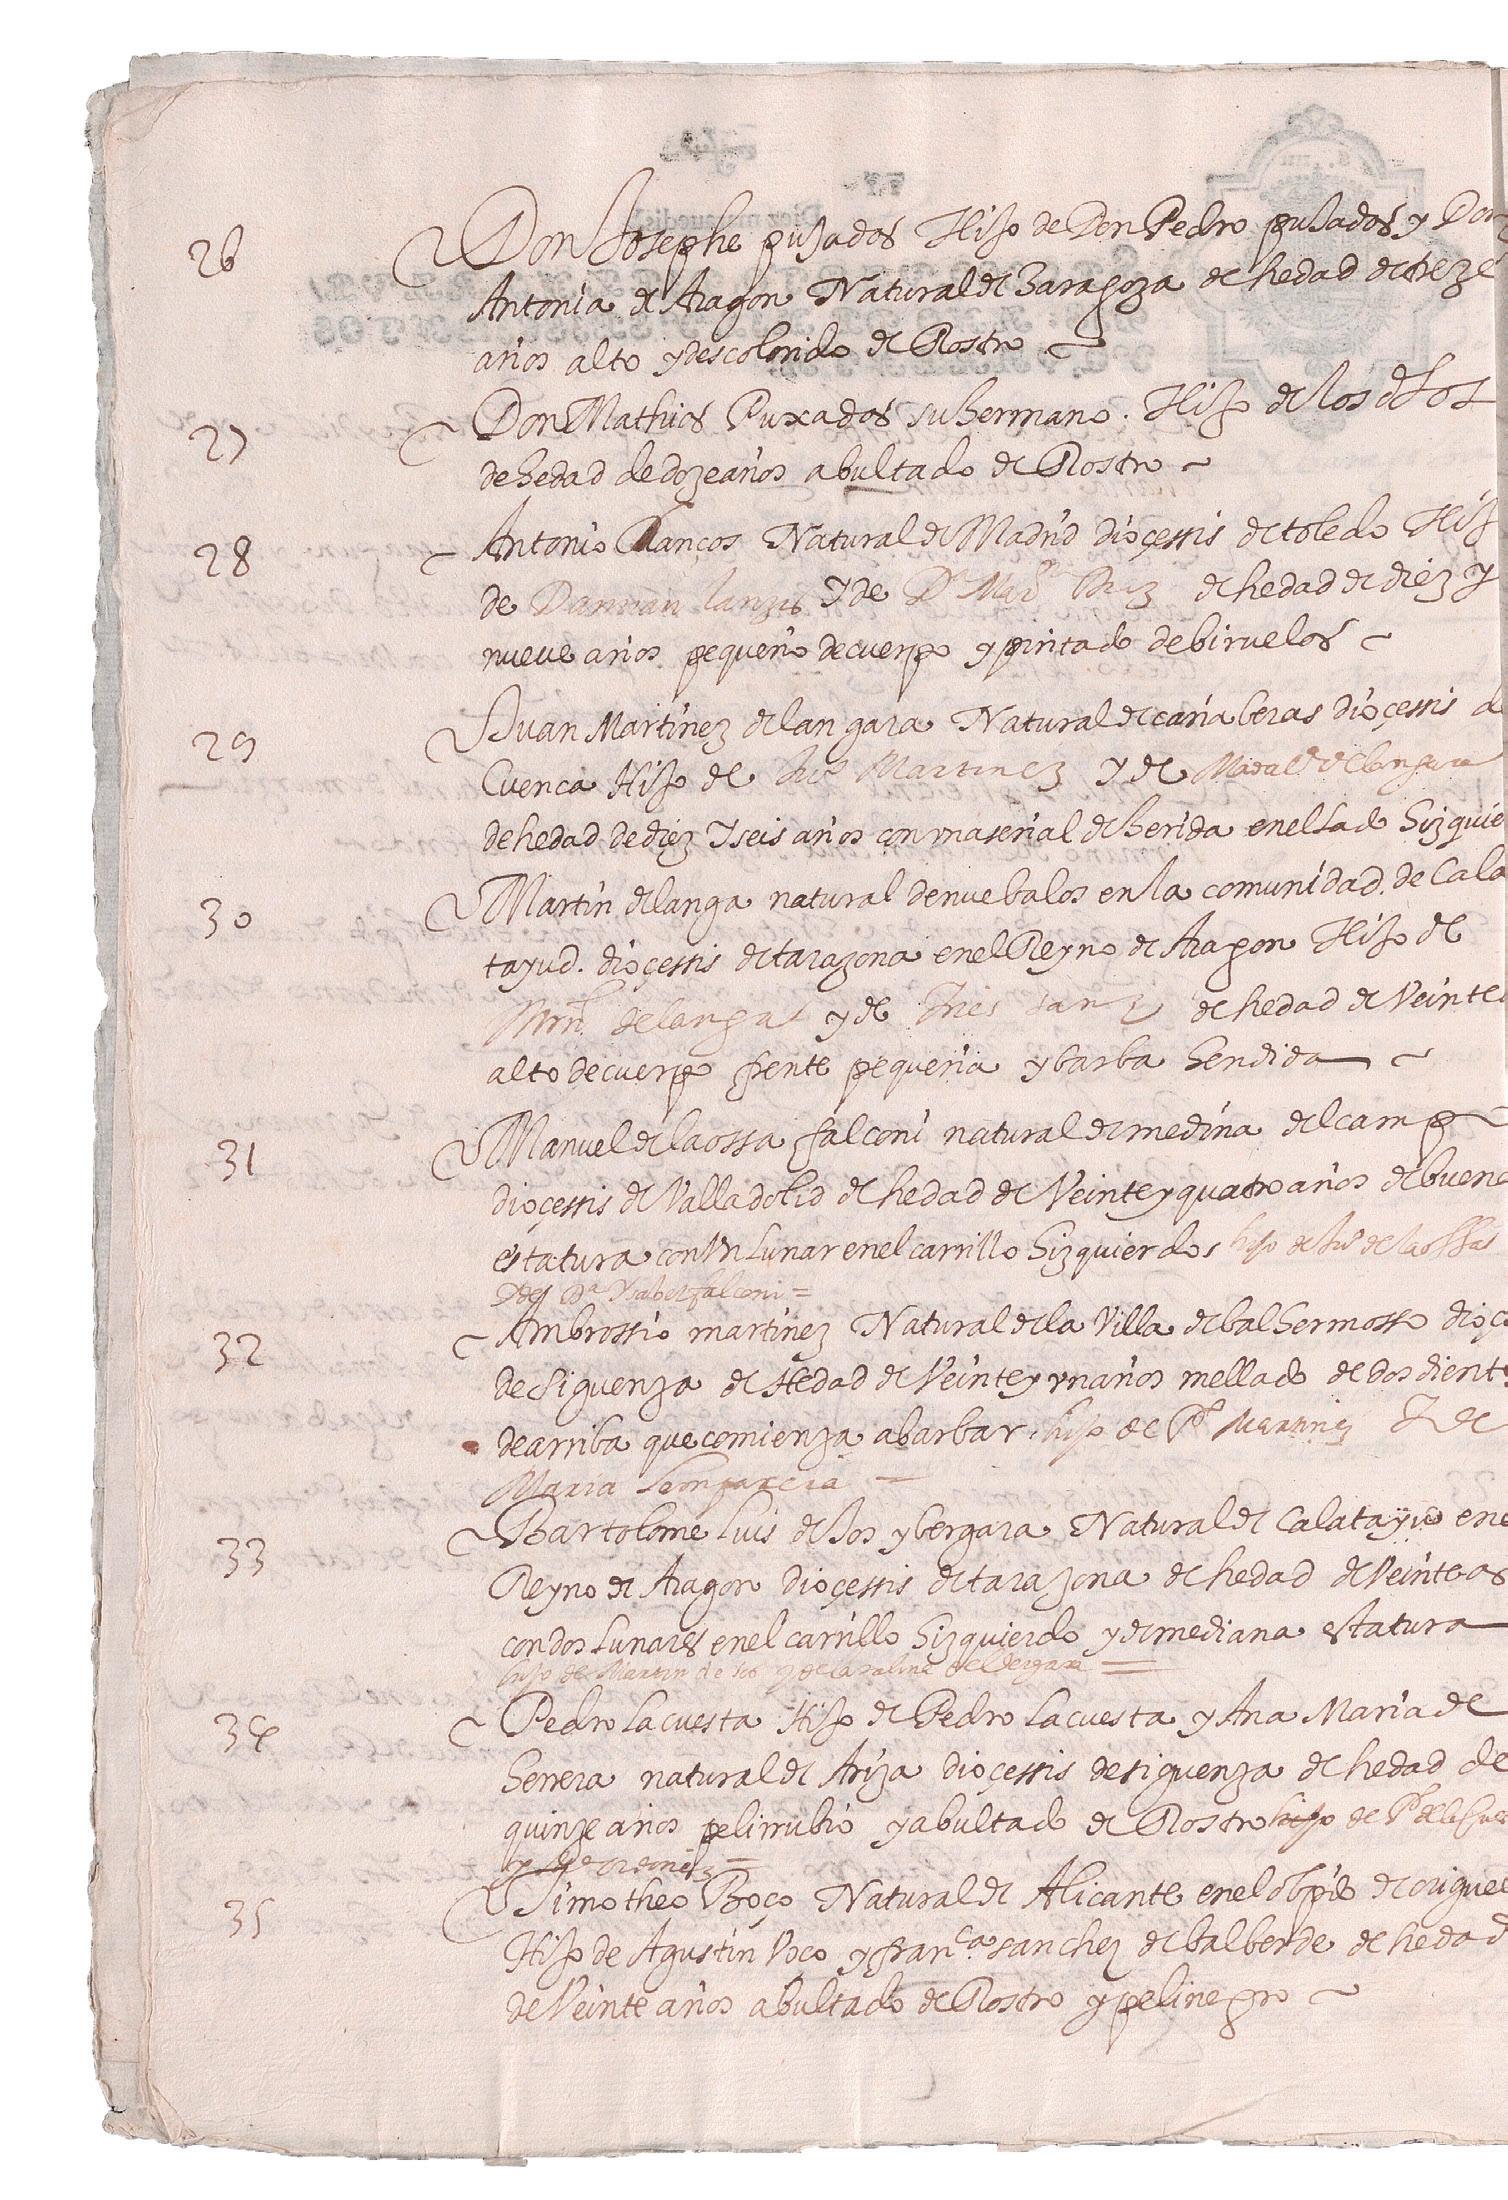 26 Don Josephe pujados Hijo de Don Pedro pujados y Don
Antonia de Aragon Natural de Zaragoza de hedad de treze
años alto y descolorido de Rostro
27 Don Mathias Puxados su hermano. Hijo de los dhos
de hedad de doze años abultado de Rostro
28 Antonio Lanços Natural de Madrid dioçessis de toledo Hijo
de Damian Lanzos Y de Dª Marª Ruiz de hedad de diez y
nueve años pequeño de cuerpo y pintado de biruelas
29 Juan Martinez de langara Natural de cañaberas dioçessis de
Cuenca Hijo de Juº Martinez y de Madal de langara
de hedad de diez Y seis años con una señal de herida en el lado hizquier
30 Martin de langa natural de nuebalos en la comunidad de Cala
tayud. dioçessis de tarazona en el Reyno de Aragon Hijo de
Mrn de langa y de Ines sanz de hedad de Veinte
alto de cuerpo frente pequeña y barba hendida
31 Manuel de la ossa falconi natural de medina del campo
dioçessis de Valladolid de hedad de Veinte y quatro años de buena
estatura con Un Lunar en el carrillo hizquierdo hijo de Juº de la ossa
Y de Dª Ysabel falconi =
32 Ambrossio martinez Natural de la Villa de balhermosso dioçe
de Siguenza de Hedad de Veinte y un años mellado de dos dientes
de arriba que comienza a barbar hijo de Pº Martinez Y de
Maria garcia =
33 Bartolome Luis de Sos y bergara Natural de Calatayud en e
Reyno de Aragon dioçessis de tarazona de hedad de Veinte as
con dos Lunares en el carrillo hizquierdo y de mediana estatura
hijo de Martin de sos y de Catalina de Vergara =
34 Pedro La cuesta Hijo de Pedro La cuesta y Ana Maria de
herrera natural de Ariza dioçessis de siguenza de hedad de
quinze años pelirrubio y abultado de Rostro hijo de Pº de la Cues
35 Timotheo Boço Natural de Alicante en el obpdo de origuel
Hijo de Agustin Voco y franca sanchez de balberde de hedad
de Veinte años abultado de Rostro y pelinegro